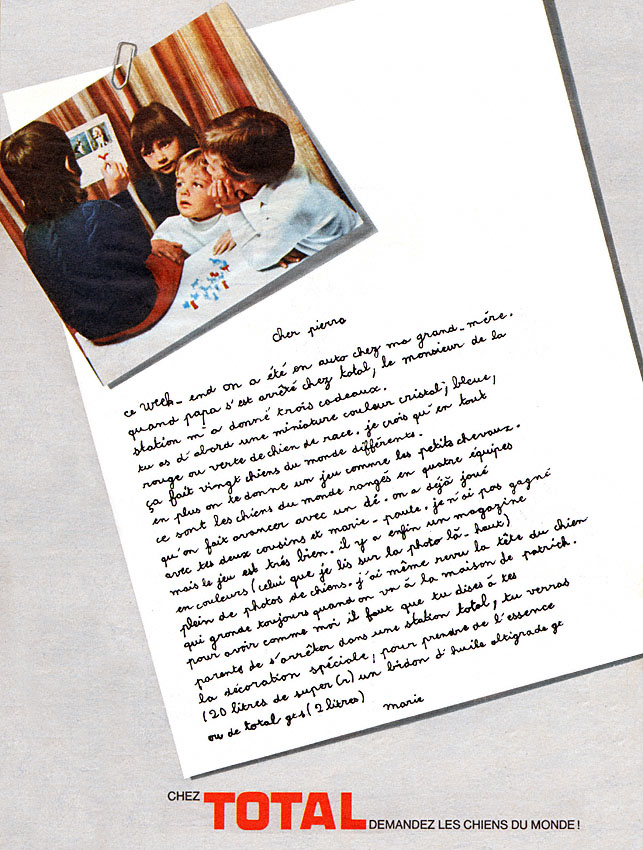 cher pierre
ce week-end on a été en auto chez ma grand-mère.
quand papa s'est arrêté chez total, le monsieur de la
station m'a donné trois cadeaux.
tu as d'abord une miniature couleur cristal, bleue,
rouge ou verte de chien de race. je crois qu'en tout
ça fait vingt chiens du monde différents.
en plus on te donne un jeu comme les petits chevaux.
ce sont les chiens du monde rangés en quatre équipes
qu'on fait avancer avec un dé. on a déjà joué
avec tes deux cousins et marie-paule. je n'ai pas gagné
mais le jeu est très bien. il y a enfin un magazine
en couleurs (celui que je lis sur la photo là-haut)
plein de photos de chiens. j'ai même revu la tête du chien
qui gronde toujours quand on va à la maison de patrick.
pour avoir comme moi il faut que tu dises à tes
parents de s'arrêter dans une station total, tu verras
la décoration spéciale, pour prendre de l'essence
(20 litres de super(r) un bidon d'huile altigrade gt
ou de total gts (2 litres)
marie
CHEZ TOTAL DEMANDEZ LES CHIENS DU MONDE!